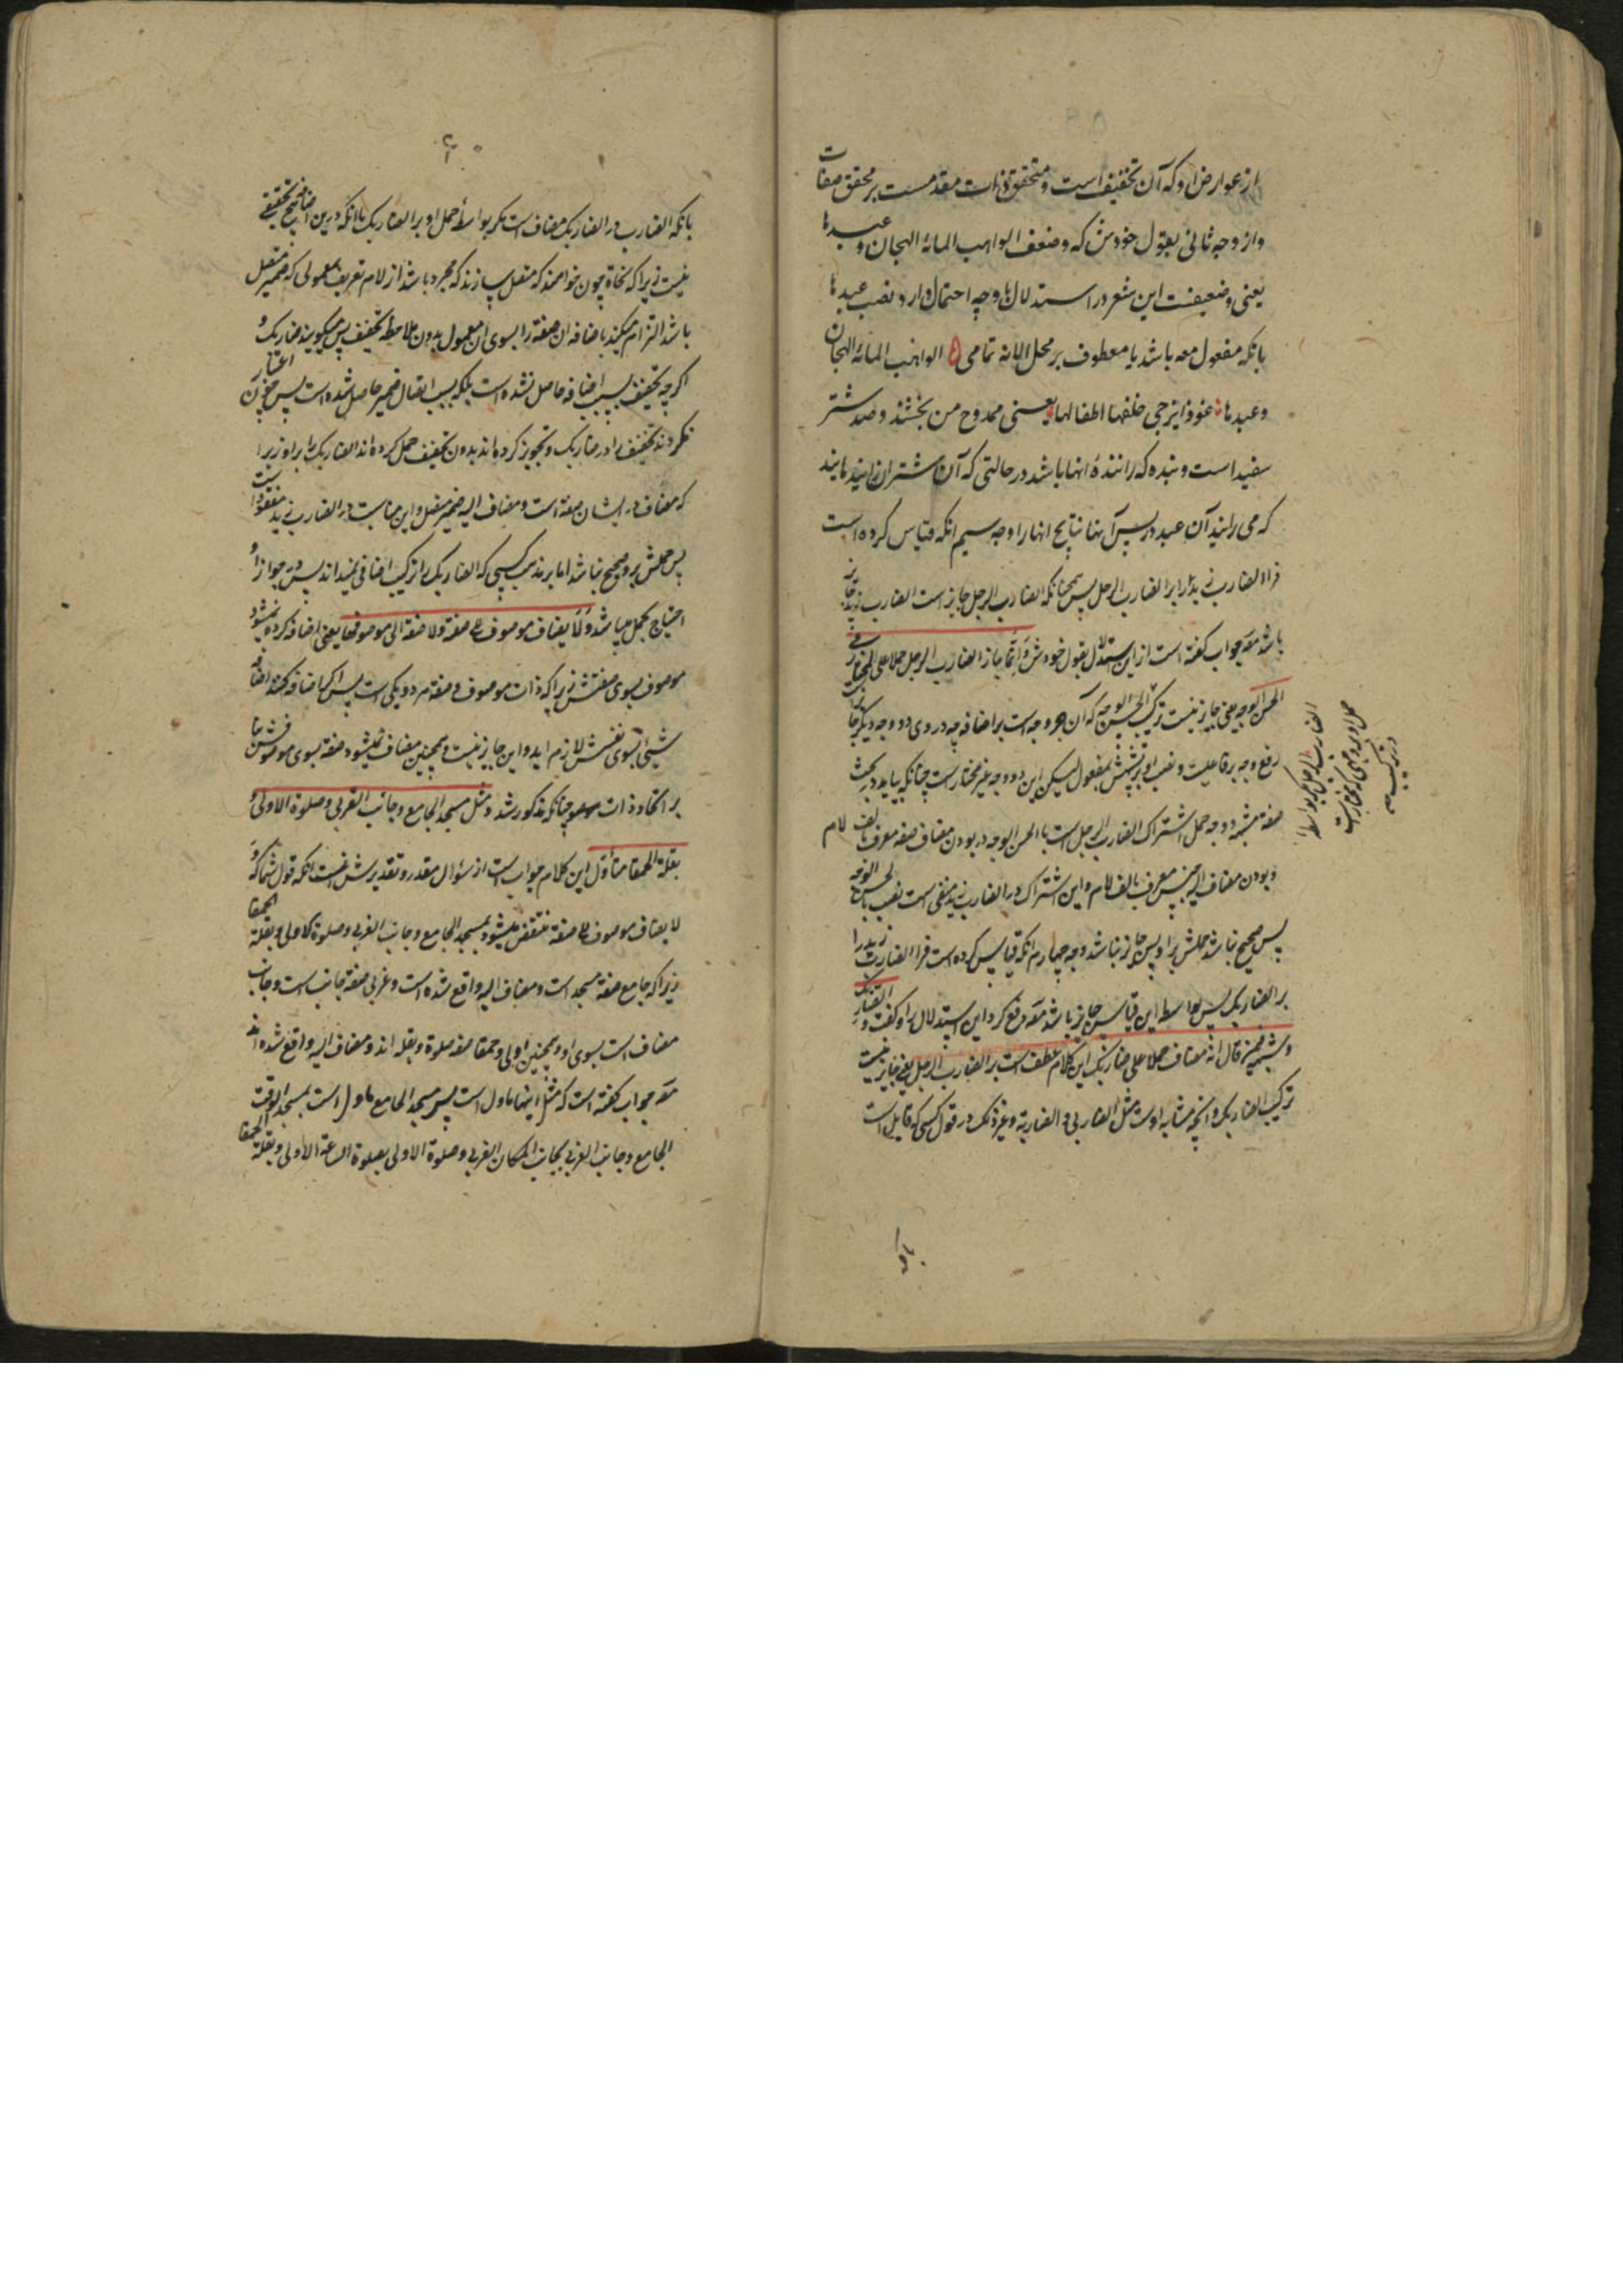 از عوارض او که آن تخفیف است و متحقق ذات مقدمست بر محقق صفات
و از وجه ثانی بقول خودش که و ضعف الواهب المائة الهجان و عبدها
یعنی و ضعیفست این شعر در استدلال با وجه احتمال وارد نصب عبدها
بانکه مفعول معه باشد یا معطوف بر محل المائة تمامی الواهب المائة الهجان
و عبدها عوذا یزجی خلفها اطفالها یعنی ممدوح من بخشنده صد شتر
سفید است و بنده که راننده انها باشد در حالتی که آن شتران زاینده اند
که می راند آن عبد در پس آنها نتایج انها را وجه سیم انکه قیاس کرده است
فرا الضارب زید را بر الضارب الرجل پس همچنانکه الضارب الرجل جایز است الضارب زید جایز
باشد مص جواب کفته است از این استدلال بقول خودش و انما جاز الضارب الرجل حملا علی المختار فی
الحسن الوجه یعنی جایز نیست ترکیب الحسن الوجه که آن جر وجه است بر اضافه چه در وی دو وجه دیگر جایز
رفع وجه بر فاعلیت و نصب او بر تشبیهش بمفعول لیکن این دو وجه غیر مختار است چنانکه بیاید در بحث
صفة مشبهه و وجه حمل اشتراک الضارب الرجل است با الحسن الوجه در بودن مضاف صفه معرف بالف لام
و بودن مضاف الیه جنس معرف بالف لام و این اشتراک در الضارب زید منتفی است نسبت بالحسن الوجه
پس صحیح نباشد حملش بر او پس جایز نباشد وجه چهارم انکه قیاس کرده است فرا الضارب زید را
بر الضاربک پس بواسطه این قیاس جایز باشد مص دفع کرد این استدلال را و کفت و الضاربک
و شبهه فیمن قال انه مضاف حملا علی ضاربک این کلام عطف است بر الضارب الرجل یعنی جایز نیست
ترکیب الضاربک و انچه مشابه اوست مثل الضاربی و الضاربه و غیر ذلک در قول کسی که قایل است
الضارب الرجل مکر بواسطه
حمل او بر وجهی که مختار است
در ترکیب
بانکه
بانکه الضارب در الضاربک مضاف است مکر بواسطه حمل او بر الضاربک با انکه در این اضافه هیچ تخفیفی
نیست زیرا که نحاة چون خواهند که متصل سازند که مجرد باشد از لام تعریف بمعمولی که ضمیر متصل
باشد التزام میکنند باضافه ان صفة را بسوی ان معمول بدون ملاحظه تخفیف پس میکویند ضاربک و
اکرچه تخفیف بسبب اضافه حاصل نشده است بلکه بسبب اتصال ضمیر حاصل شده است پس چون اعتبار
نکردند تخفیف را در ضاربک و تجویز کرده اند بدون تخفیف حمل کرده اند الضاربک را بر او زیرا
که مضاف در ایشان صفة است و مضاف الیه ضمیر متصل و این مناسبت در الضارب زید مفقود است
پس حملش بر او صحیح نباشد اما بر مذهب کسی که الضاربک را ترکیب اضافی نمیداند پس در جواز او
احتیاج بحمل نباشد و لا یضاف موصوف الی صفة و لا صفة الی موصوفها یعنی اضافه کرده نمیشود
موصوف بسوی صفتش زیرا که ذات موصوف و صفة هر دو یکی است پس اکر اضافه کنند اضافه
شیئ بسوی نفسش لازم اید و این جایز نیست و همچنین مضاف نمیشود صفة بسوی موصوفش بنا
بر اتحاد ذات چنانکه مذکور شد و مثل مسجد الجامع و جانب الغربی و صلوة الاولی و
بقلة الحمقا متأول این کلام جواب است از سؤال مقدر و تقدیرش اینست که قول شما که و
لا یضاف موصوف الی صفة منتقض میشود بمسجد الجامع و جانب الغربی و صلوة الاولی و بقلة الحمقا
زیرا که جامع صفة مسجد است و مضاف الیه واقع شده است و غربی صفة جانب است و جانب
مضاف است بسوی او و همچنین اولی و حمقا صفه صلوة و بقله اند و مضاف الیه واقع شده اند
مص جواب کفته است که مثل اینها ماول است پس مسجد الجامع ماول است بمسجد الوقت
الجامع و جانب الغربی بجانب المکان الغربی و صلوة الاولی بصلوة الساعة الاولی و بقلة الحمقا